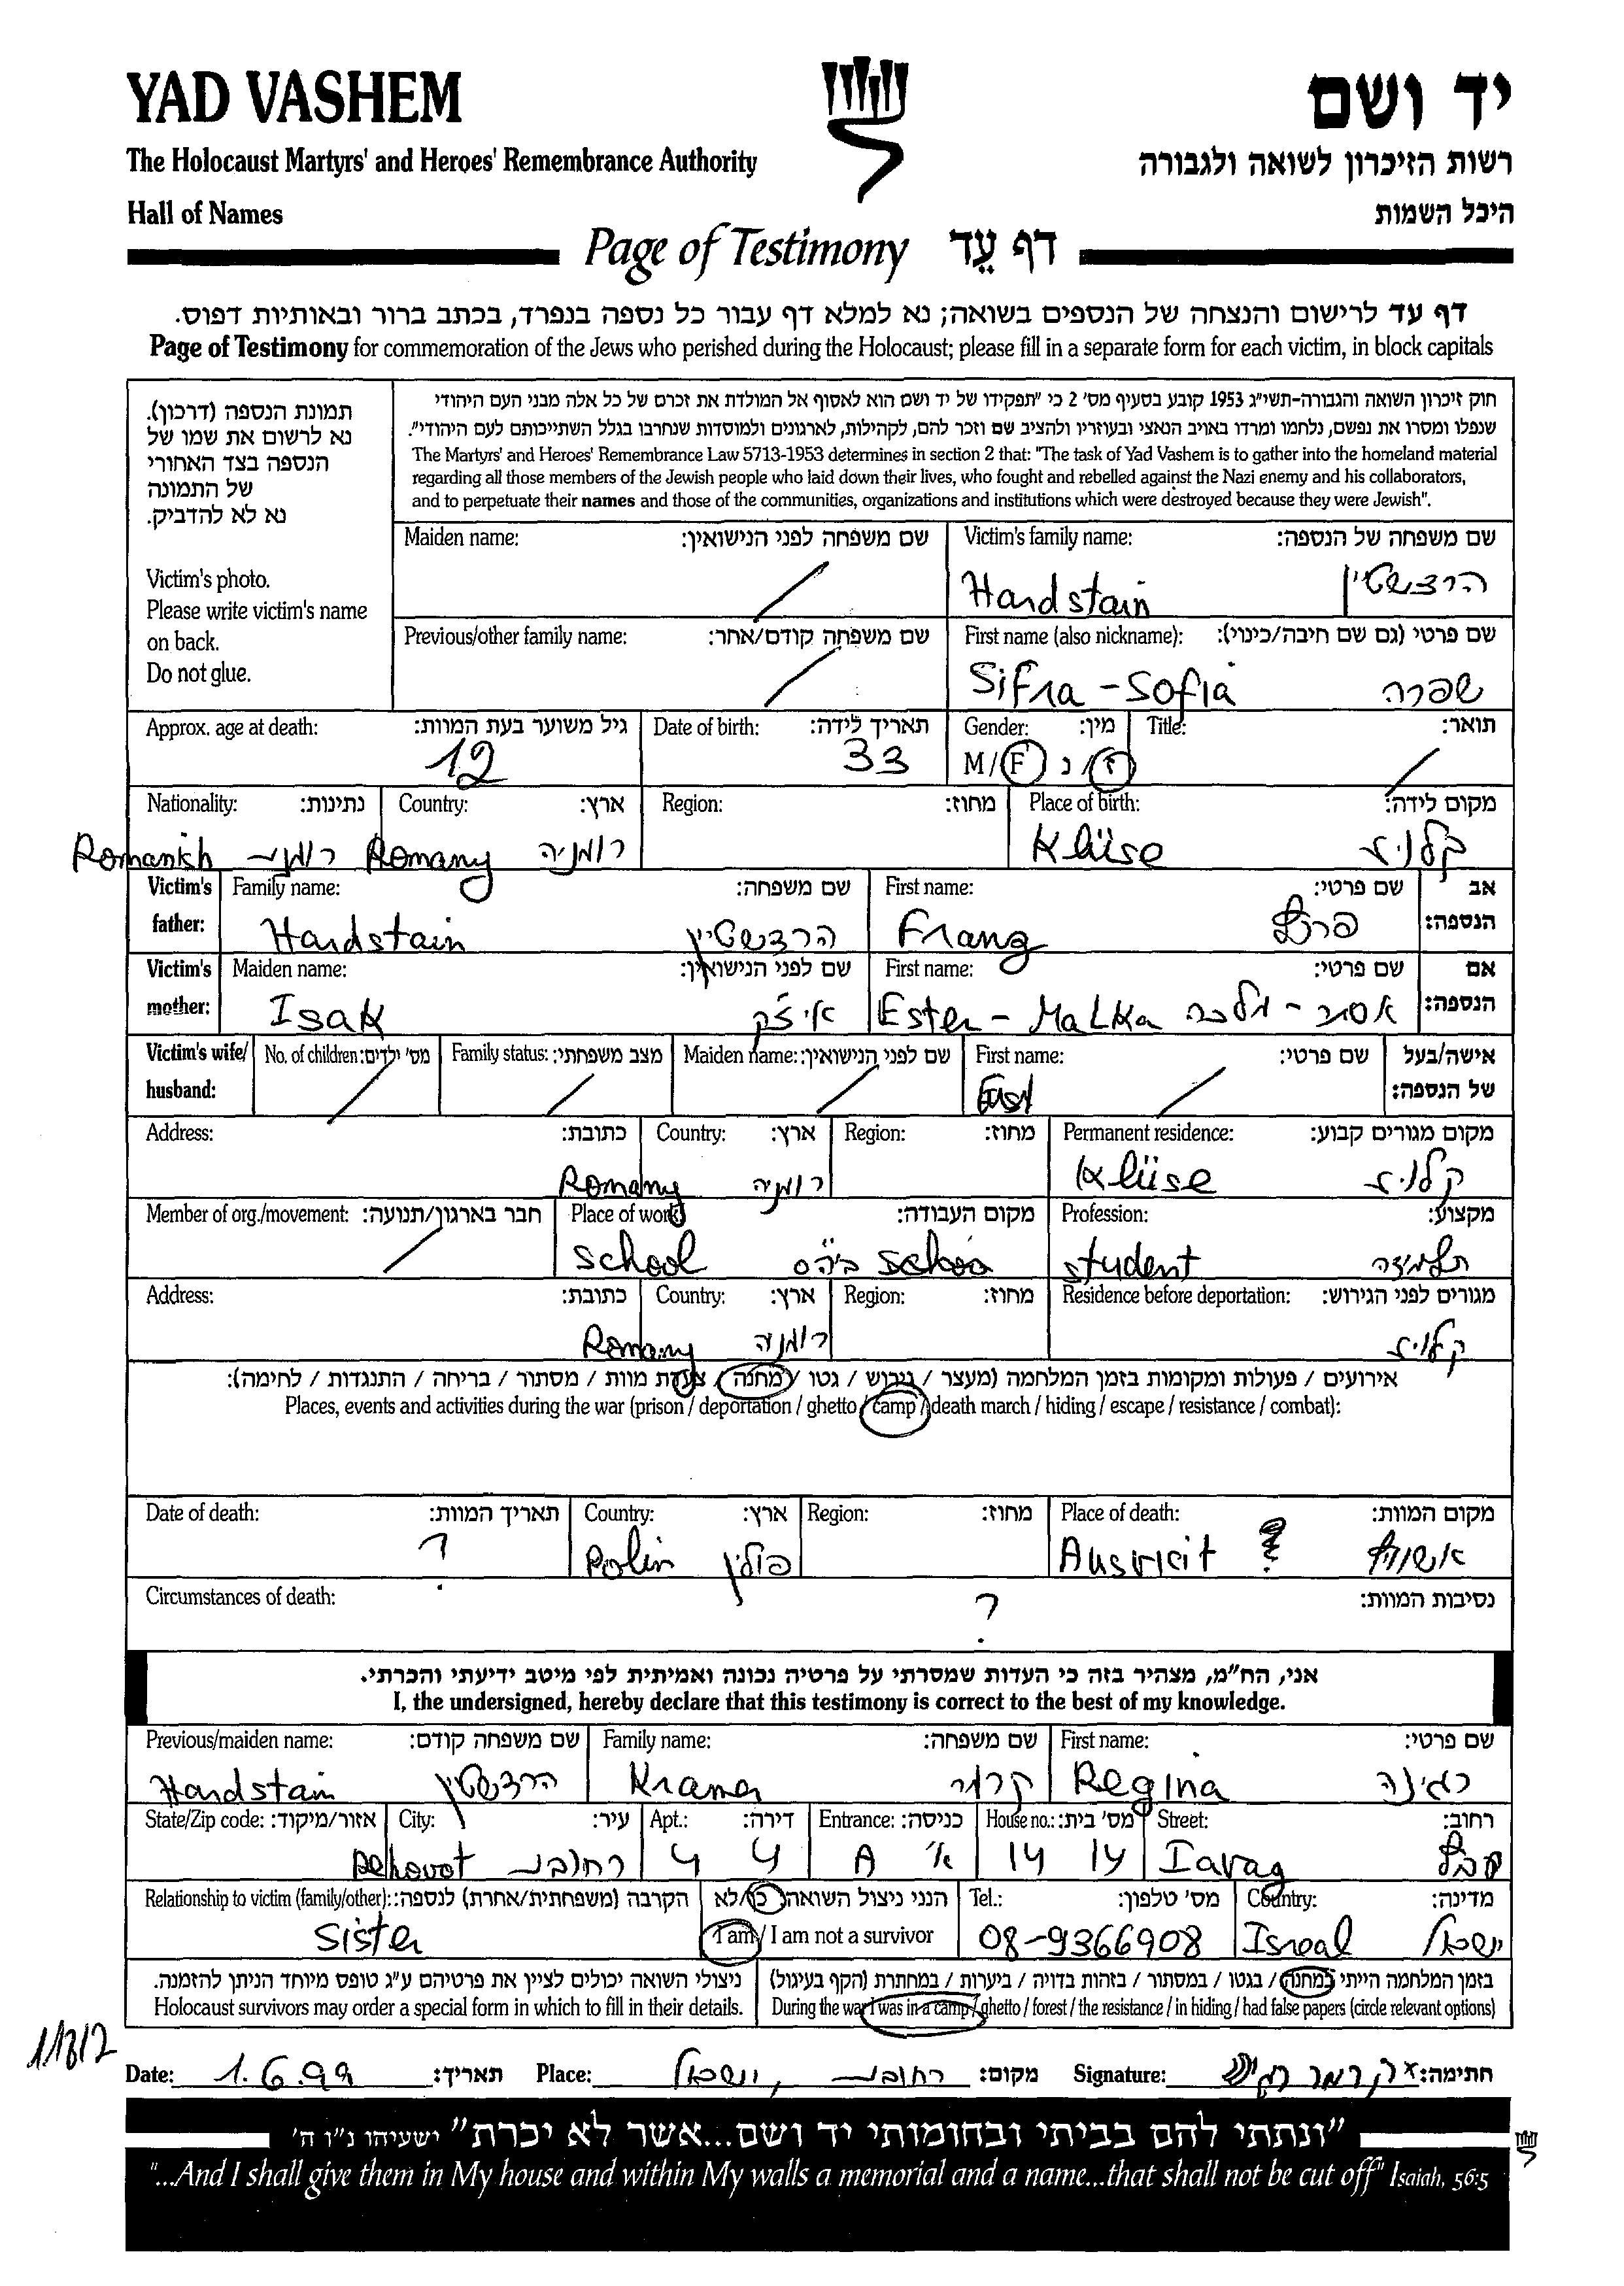 YAD VASHEM יד ושם
The Holocaust Martyrs' and Heroes' Remembrance Authority רשות הזיכרון לשואה ולגבורה
Hall of Names היכל השמות
Page of Testimony דף עֵד
דף עד לרישום והנצחה של הנספים בשואה; נא למלא דף עבור כל נספה בנפרד, בכתב ברור ובאותיות דפוס.
Page of Testimony for commemoration of the Jews who perished during the Holocaust; please fill in a separate form for each victim, in block capitals
תמונת הנספה (דרכון).
נא לרשום את שמו של
הנספה בצד האחורי
של התמונה
נא לא להדביק.
Victim's photo.
Please write victim's name
on back.
Do not glue.
חוק זיכרון השואה והגבורה-תשי״ג 1953 קובע בסעיף מס' 2 כי "תפקידו של יד ושם הוא לאסוף אל המולדת את זכרם של כל אלה מבני העם היהודי
שנפלו ומסרו את נפשם, נלחמו ומרדו באויב הנאצי ובעוזריו ולהציב שם וזכר להם, לקהילות, לארגונים ולמוסדות שנחרבו בגלל השתייכותם לעם היהודי".
The Martyrs' and Heroes' Remembrance Law 5713-1953 determines in section 2 that: "The task of Yad Vashem is to gather into the homeland material
regarding all those members of the Jewish people who laid down their lives, who fought and rebelled against the Nazi enemy and his collaborators,
and to perpetuate their names and those of the communities, organizations and institutions which were destroyed because they were Jewish".
Maiden name: שם משפחה לפני הנישואין: Victim's family name: שם משפחה של הנספה:
/ Hardstain הרצשטיין
Previous/other family name: שם משפחה קודם/אחר: First name (also nickname): שם פרטי (גם שם חיבה/כינוי):
/ Sifra - Sofia שפרה
Approx. age at death: גיל משוער בעת המוות: Date of birth: תאריך לידה: Gender: מין: Title: תואר:
12 33 M / F ז / נ /
Nationality: נתינות: Country: ארץ: Region: מחוז: Place of birth: מקום לידה:
Romanish רומני Romany רומניה Klüse קלויז
Victim's father: Family name: שם משפחה: First name: שם פרטי: אב הנספה:
Hardstain הרצשטיין Franz פרנץ
Victim's mother: Maiden name: שם לפני הנישואין: First name: שם פרטי: אם הנספה:
Isak איזק Ester - Malka אסתר - מלכה
Victim's wife/ husband: No. of children: מס' ילדים: Family status: מצב משפחתי: Maiden name: שם לפני הנישואין: First name: שם פרטי: אישה/בעל של הנספה:
/ / / /
Address: כתובת: Country: ארץ: Region: מחוז: Permanent residence: מקום מגורים קבוע:
Romany רומניה Klüise קלויז
Member of org./movement: חבר בארגון/תנועה: Place of work: מקום העבודה: Profession: מקצוע:
/ School ביה״ס student תלמידה
Address: כתובת: Country: ארץ: Region: מחוז: Residence before deportation: מגורים לפני הגירוש:
Romany רומניה קלויז
אירועים / פעולות ומקומות בזמן המלחמה (מעצר / גירוש / גטו / מחנה / צעדת מוות / מסתור / בריחה / התנגדות / לחימה):
Places, events and activities during the war (prison / deportation / ghetto / camp / death march / hiding / escape / resistance / combat):
Date of death: תאריך המוות: Country: ארץ: Region: מחוז: Place of death: מקום המוות:
? Polin פולין Ausvicit אשוויץ
Circumstances of death: נסיבות המוות:
?
אני, הח״מ, מצהיר בזה כי העדות שמסרתי על פרטיה נכונה ואמיתית לפי מיטב ידיעתי והכרתי.
I, the undersigned, hereby declare that this testimony is correct to the best of my knowledge.
Previous/maiden name: שם משפחה קודם: Family name: שם משפחה: First name: שם פרטי:
Hardstain הרצשטיין Kramer קרמר Regina רגינה
State/Zip code: אזור/מיקוד: City: עיר: Apt.: דירה: Entrance: כניסה: House no.: מס' בית: Street: רחוב:
Rehovot רחובות 4 4 A א' 14 14
Relationship to victim (family/other): הקרבה (משפחתית/אחרת) לנספה: הנני ניצול השואה כן/לא Tel.: מס' טלפון: Country: מדינה:
Sister I am / I am not a survivor 08-9366908 Isreal ישראל
ניצולי השואה יכולים לציין את פרטיהם ע״ג טופס מיוחד הניתן להזמנה. בזמן המלחמה הייתי במחנה / בגטו / במסתור / בזהות בדויה / ביערות / במחתרת (הקף בעיגול)
Holocaust survivors may order a special form in which to fill in their details. During the war I was in a camp / ghetto / forest / the resistance / in hiding / had false papers (circle relevant options)
Date: 1.6.99 תאריך: Place: רחובות, ישראל מקום: Signature: קרמר חתימה:
"ונתתי להם בביתי ובחומותי יד ושם...אשר לא יכרת" ישעיהו נ״ו ה'
"...And I shall give them in My house and within My walls a memorial and a name...that shall not be cut off" Isaiah, 56:5